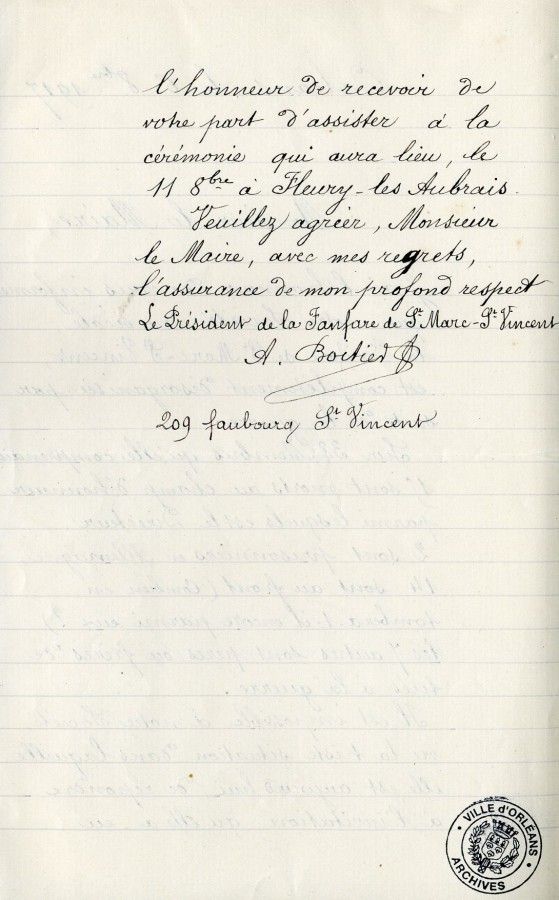 l'honneur de recevoir de
votre part d'assister à la
cérémonie qui aura lieu, le
11 8bre à Fleury-les Aubrais.
Veuillez agréer, Monsieur
le Maire, avec mes regrets,
l'assurance de mon profond respect
Le Président de la Fanfare de St Marc-St Vincent
A. Boitier
209 faubourg St Vincent
VILLE d'ORLÉANS
ARCHIVES